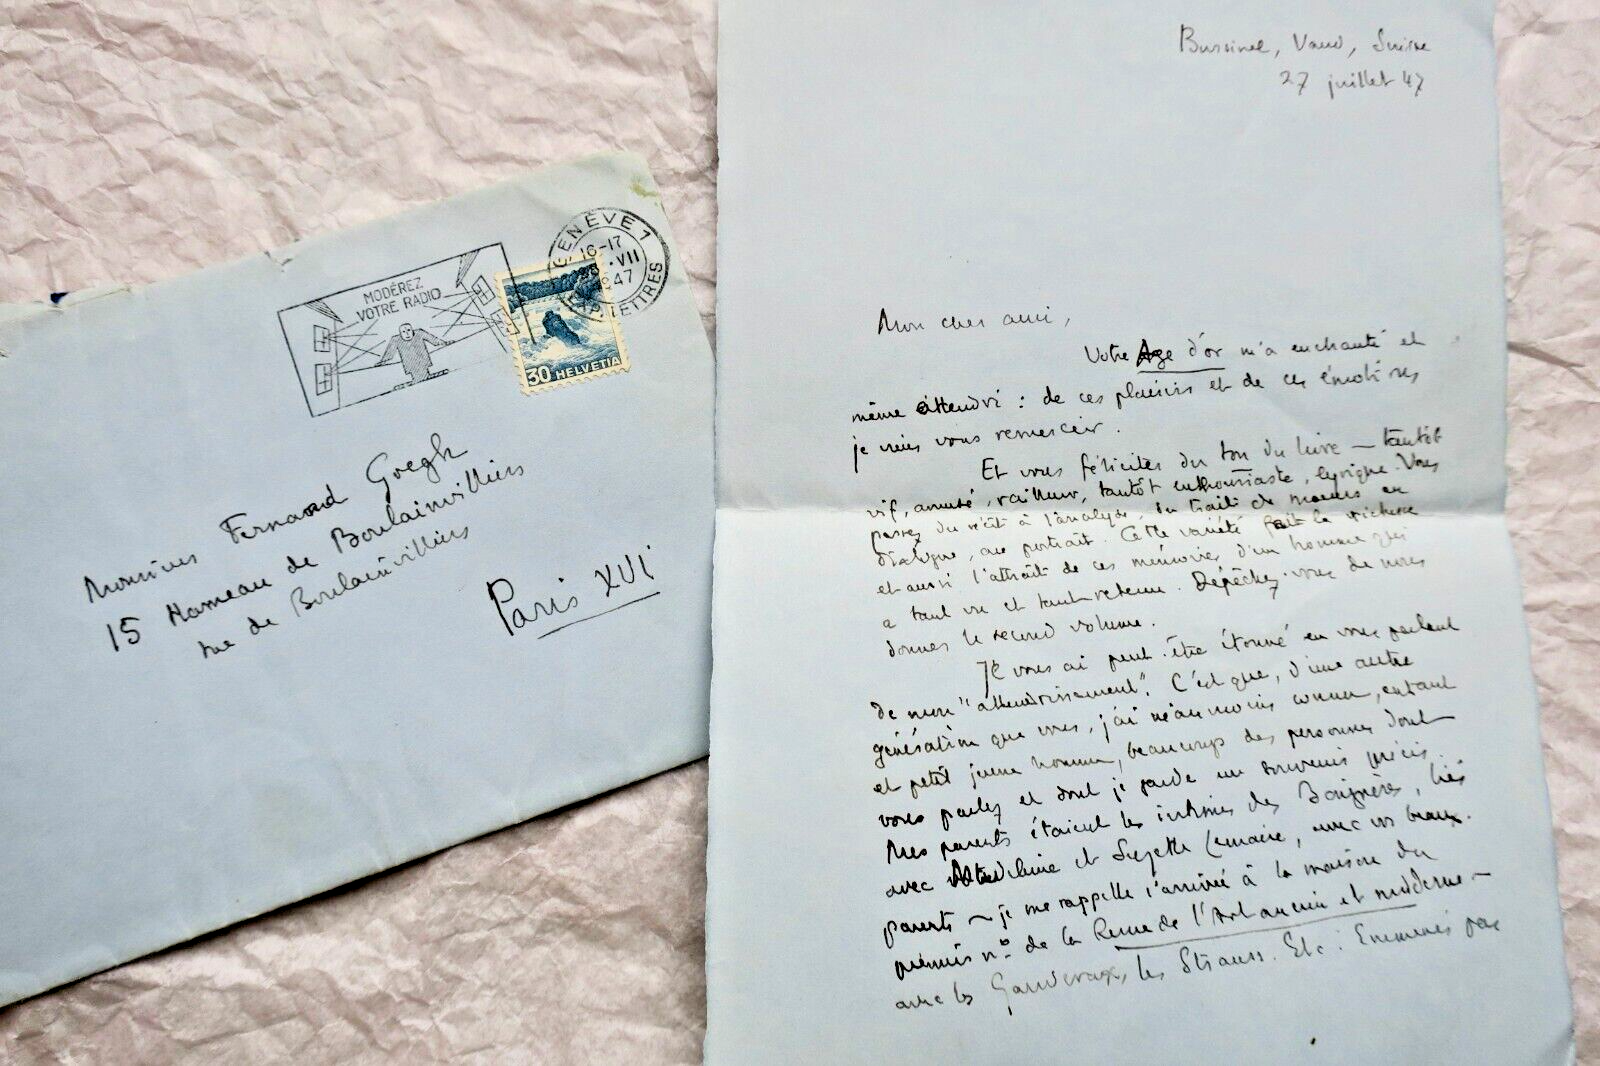 MODÉREZ
VOTRE RADIO
GENÈVE 1
16-17
28.VII
1947
EXP. LETTRES
30 HELVETIA
Monsieur Fernand Gregh
15 Hameau de Boulainvilliers
rue de Boulainvilliers
Paris XVI
Bursinel, Vaud, Suisse
27 juillet 47
Mon cher ami,
Votre Age d'or m'a enchanté et
même attendri : de ces plaisirs et de ces émotions
je viens vous remercier.
Et vous féliciter du ton du livre — tantôt
vif, amusé, railleur, tantôt enthousiaste, lyrique. Vous
passez du récit à l'analyse, du trait de mœurs au
dialogue, au portrait. Cette variété fait la richesse
et aussi l'attrait de ces mémoires d'un homme qui
a tant vu et tant retenu. Dépêchez-vous de nous
donner le second volume.
Je vous ai peut-être étonné en vous parlant
de mon "attendrissement". C'est que, d'une autre
génération que vous, j'ai néanmoins connu, enfant
et petit jeune homme, beaucoup des personnes dont
vous parlez et dont je garde un souvenir précis.
Mes parents étaient les intimes des Baignères, liés
avec Madeleine et Suzette Lemaire, avec vos beaux-
parents — je me rappelle l'arrivée à la maison du
premier n° de la Revue de l'Art ancien et moderne —
avec les Ganderax, les Strauss. Etc : Emmenés par